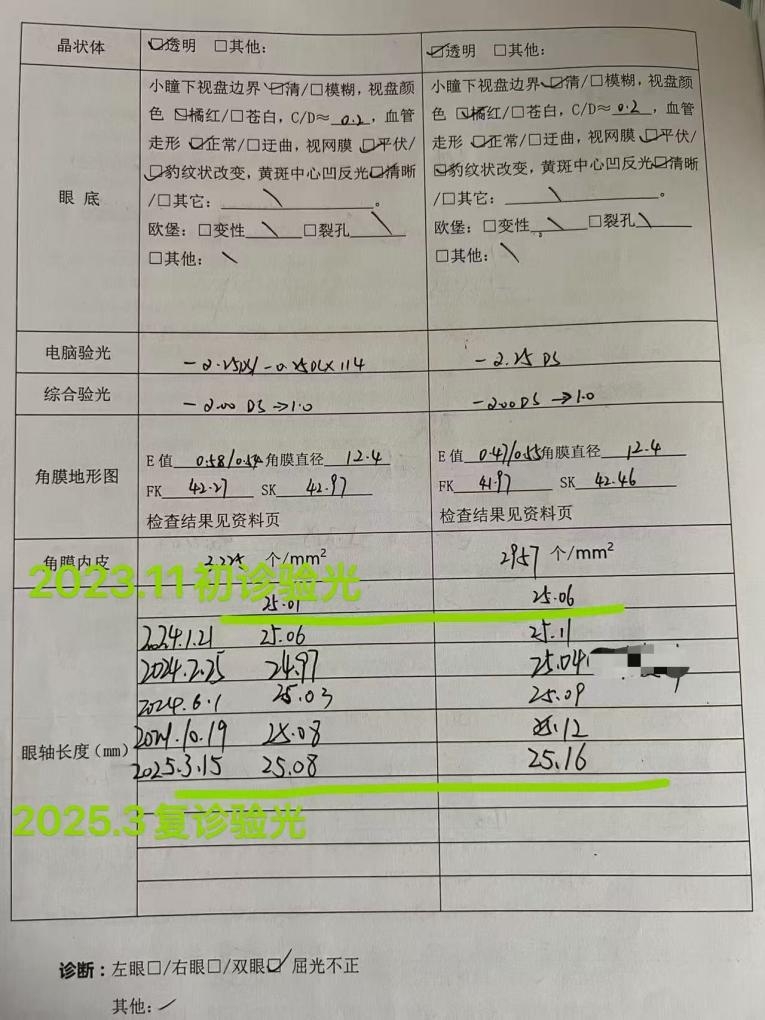 晶状体 ☑透明 □其他： ☑透明 □其他：
眼 底
小瞳下视盘边界☑清/□模糊，视盘颜
色 ☑橘红/□苍白，C/D≈ 0.2，血管
走形 ☑正常/□迂曲，视网膜 ☑平伏/
☑豹纹状改变，黄斑中心凹反光☑清晰
/□其它： \ 。
欧堡：□变性 \ □裂孔 \
□其他： \
小瞳下视盘边界☑清/□模糊，视盘颜
色 ☑橘红/□苍白，C/D≈ 0.2，血管
走形 ☑正常/□迂曲，视网膜 ☑平伏/
☑豹纹状改变，黄斑中心凹反光☑清晰
/□其它： \ 。
欧堡：□变性 \ □裂孔 \
□其他： \
电脑验光 -2.25DS/-0.25DC×114 -2.25 DS
综合验光 -2.00 DS→1.0 -2.00DS→1.0
角膜地形图
E 值 0.58/0.54 角膜直径 12.4
FK 42.27 SK 42.97
检查结果见资料页
E 值 0.47/0.55 角膜直径 12.4
FK 41.97 SK 42.46
检查结果见资料页
角膜内皮 个/mm² 2957 个/mm²
2023.11初诊验光
25.01 25.06
眼轴长度（mm）
2024.1.21 25.06 25.11
2024.2.25 24.97 25.04
2024.6.1 25.03 25.09
2024.10.19 25.08 25.12
2025.3.15 25.08 25.16
2025.3复诊验光
诊断：左眼□/右眼□/双眼☑ 屈光不正
其他：/